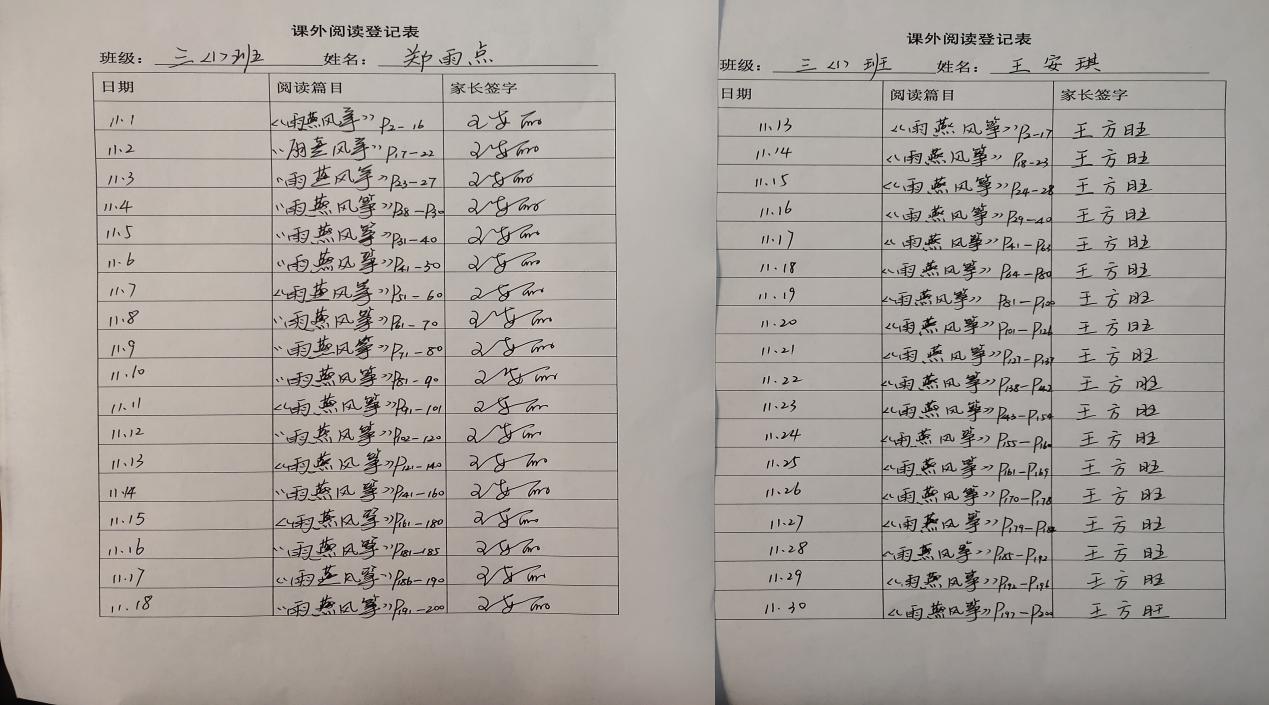 课外阅读登记表
班级: 三(1)班 姓名: 郑雨点
日期 阅读篇目 家长签字
11.1 《雨燕风筝》P2-16
11.2 《雨燕风筝》P17-22
11.3 《雨燕风筝》P23-27
11.4 《雨燕风筝》P28-P30
11.5 《雨燕风筝》P31-40
11.6 《雨燕风筝》P41-50
11.7 《雨燕风筝》P51-60
11.8 《雨燕风筝》P61-70
11.9 《雨燕风筝》P71-80
11.10 《雨燕风筝》P81-90
11.11 《雨燕风筝》P91-101
11.12 《雨燕风筝》P102-120
11.13 《雨燕风筝》P121-140
11.14 《雨燕风筝》P141-160
11.15 《雨燕风筝》P161-180
11.16 《雨燕风筝》P181-185
11.17 《雨燕风筝》P186-190
11.18 《雨燕风筝》P191-200
课外阅读登记表
班级: 三(1)班 姓名: 王安琪
日期 阅读篇目 家长签字
11.13 《雨燕风筝》P2-17 王方旺
11.14 《雨燕风筝》P18-23 王方旺
11.15 《雨燕风筝》P24-28 王方旺
11.16 《雨燕风筝》P29-40 王方旺
11.17 《雨燕风筝》 王方旺
11.18 《雨燕风筝》P64-P80 王方旺
11.19 《雨燕风筝》P81-P100 王方旺
11.20 《雨燕风筝》P101-P126 王方旺
11.21 《雨燕风筝》P127-P137 王方旺
11.22 《雨燕风筝》P138-P142 王方旺
11.23 《雨燕风筝》P143-P154 王方旺
11.24 《雨燕风筝》P155-P160 王方旺
11.25 《雨燕风筝》P161-P169 王方旺
11.26 《雨燕风筝》P170-P178 王方旺
11.27 《雨燕风筝》 王方旺
11.28 《雨燕风筝》P185-P192 王方旺
11.29 《雨燕风筝》P192-P196 王方旺
11.30 《雨燕风筝》P197-P200 王方旺